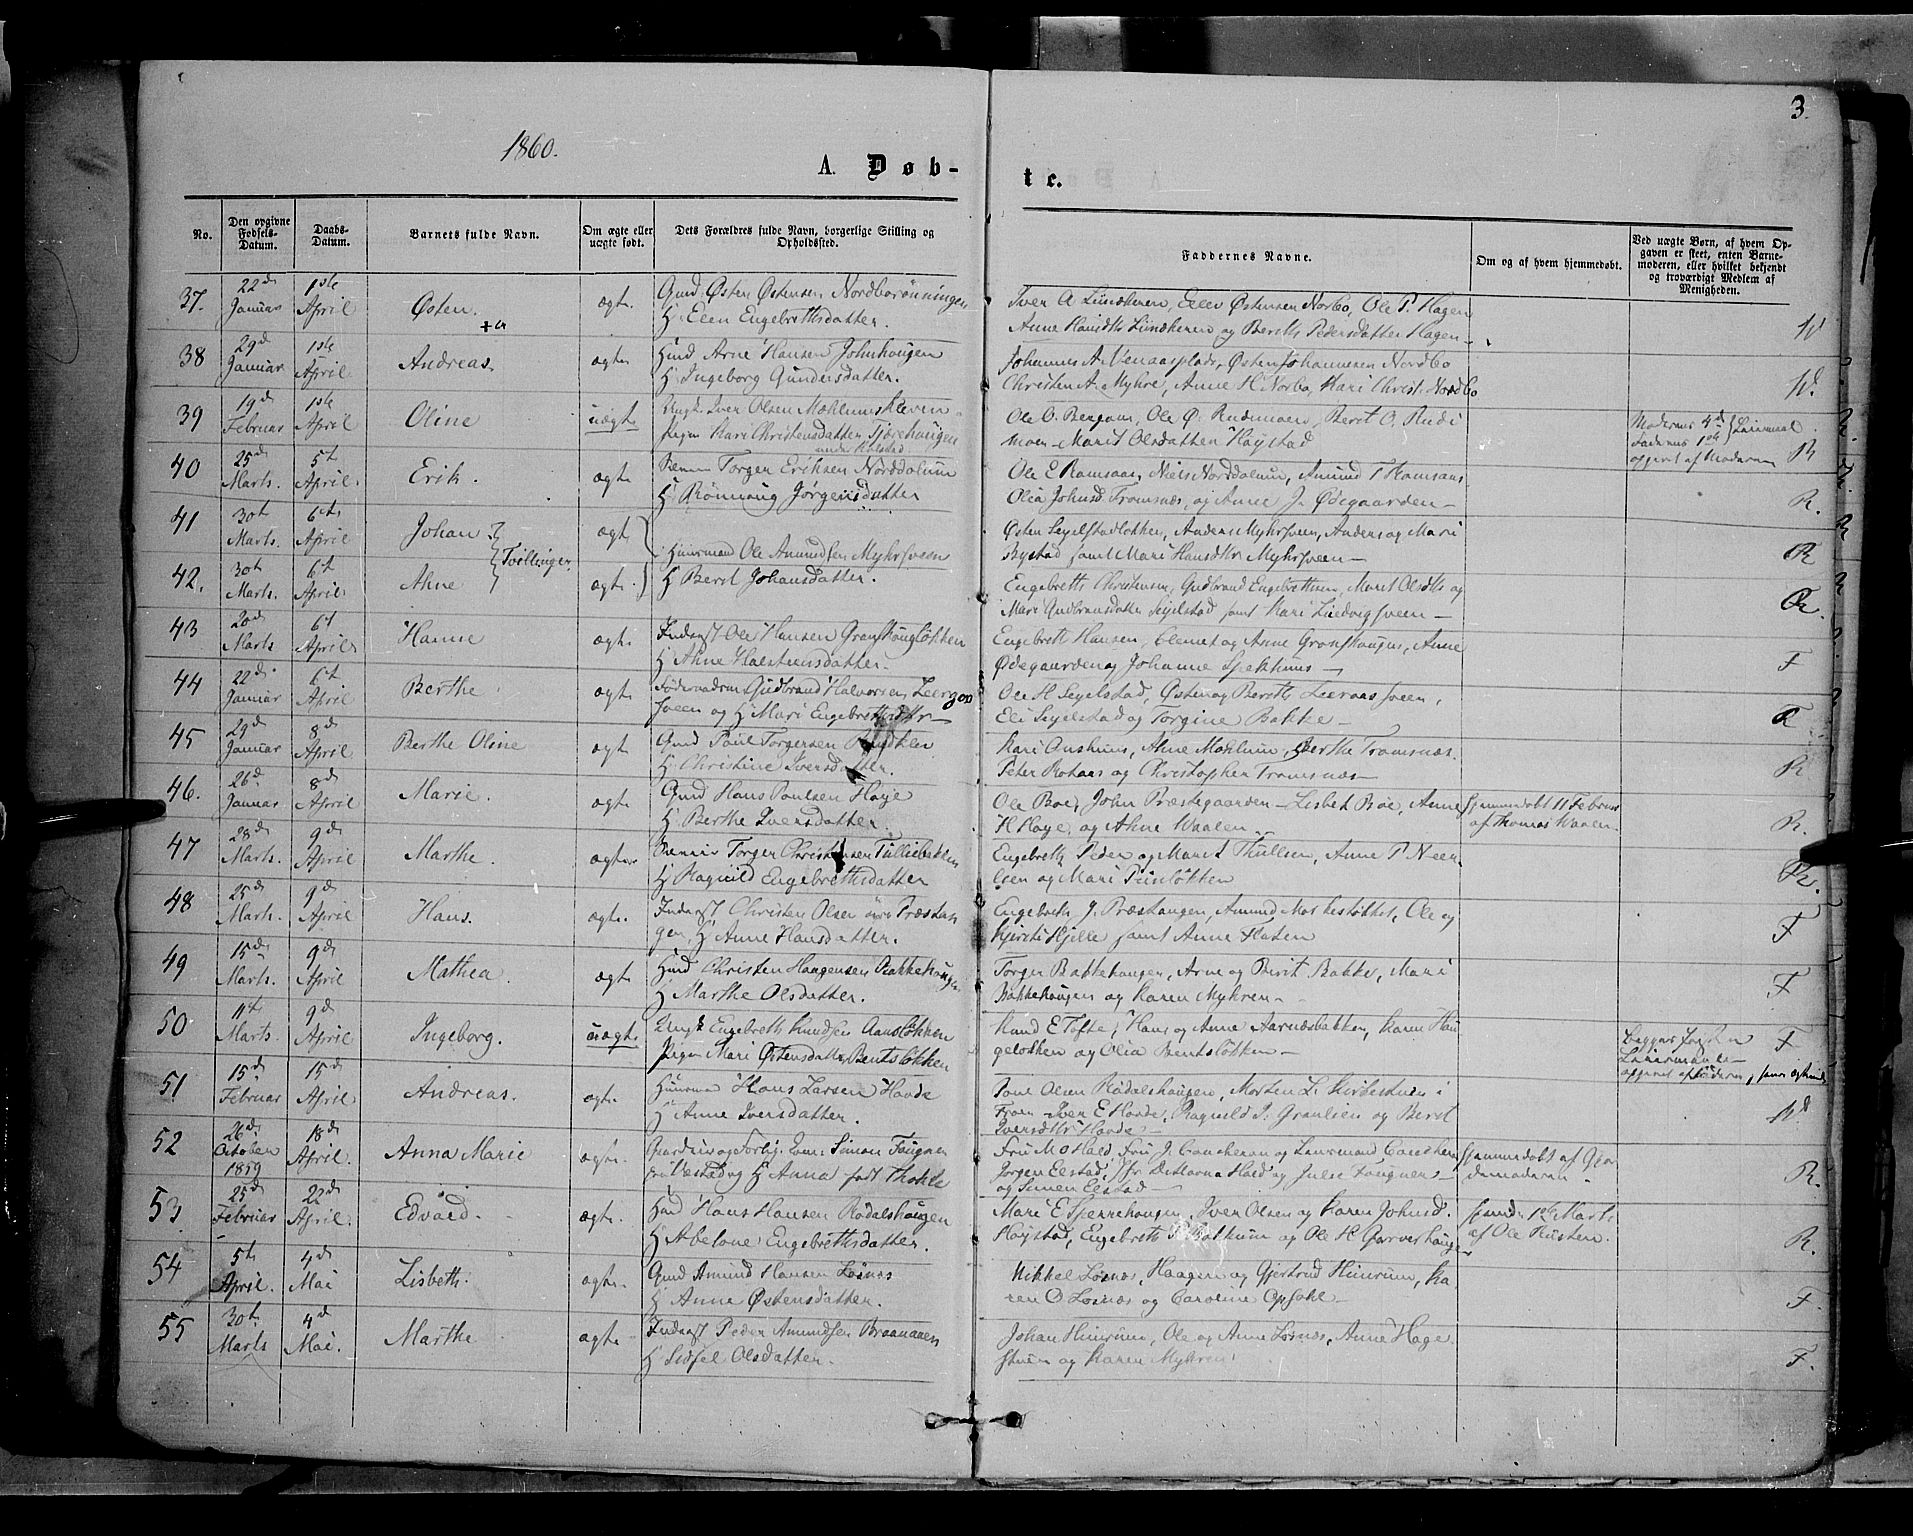 3.
1860.
A. Døb- te.
No. Den opgivne Fødsels-Datum. Daabs-Datum. Barnets fulde Navn. Om ægte eller uægte født. Dets Forældres fulde Navn, borgerlige Stilling og Opholdssted. Faddernes Navne. Om og af hvem hjemmedøbt. Ved uægte Børn, af hvem Opgaven er skeet, enten Barnemoderen, eller hvilket bekjendt og troværdigt Medlem af Menigheden.
37. 22d Januar 1ste April Østen. ægte Gmd. Østen Østensen Nordborønningen
H: Eleen Engebrethsdatter. Iver A. Lunckeren, Ellev Østensen Norbo, Ole P. Hagen
Anne Lunckeren og Bereth Pedersdatter Hagen W
38 29d Januar 1ste April Andreas. ægte Hmd Arne Hansen Johnhaugen
H: Ingeborg Gundersdatter. Johannes A. Venaasplads, Østen Johannesen Nordbo
Christen A. Myhre, Anne H. Norbo, Kari Christ. Nordbo W.
39 19d Februar 1ste April Oline uægte Ungk. Iver Olsen Mæhlumskleven
Pigen Kari Christensdatter Tjærehaugen Ole O. Bergum, Ole O. Rudimoen, Beret O. Rudi
moen - Marit Olsdatter Høystad Moderens 4d Faderens 1ste Leiermaal
opgivet af Moderen R
40 25d Marts. 5t April. Erik. ægte Torger Eriksen Norddalum
H: Rønnaug Jørgensdatter Ole E Ramsaas, Niels Norddalum, Amund T Tromsnæs
Olia Johnsd. Tromsnæs, og Anne J. Ødegaarden - R.
41 30t Marts. 6te April Johan. ægte Tvillinger. Huusmand Ole Amundsen Myhrsveen
H Beret Johansdatter. Østen Seielstadløkken, Anders Myhrsveen, Anders og Mari
Bystad samt Mari Hansdtr Myhrsveen - R
42. 30t Marts. 6t April Ahne ægte. Engebreth Christensen, Gudbrand Engebrethsen, Marit Olsdtr og
Mari Gudbransdatter Seielstad samt Kari Ludvigsveen - R.
43 20d Marts 6t April Hanne ægte Inderst Ole Hansen Granskougløkken
H: Ahne Halsteensdatter. Engebreth Hansen, Clemet og Anne Granskougen, Anne
Ødegaarden og Johanne Spekhuus - F
44 22d Januar 6t April Berthe ægte Føderaadsm Gudbrand Halvorsen Leeraas
sveen og H: Mari Engebrethsdtr - Ole H Seielstad, Østen og Bereth Leeraassveen,
Eli Seielstad og Torgine Bakke - F
45 29d Januar 8d April Berthe Oline ægte Gmd Poul Torgersen
H: Christine Iversdatter. Kari Onshuus, Ahne Mæhlum, Berthe Tromsnæs.
Peter Rohaas og Christopher Tromsnæs - R
46. 26d Januar 8d April Marie. ægte Gmd Hans Poulsen Høye
H: Berthe Iversdatter. Ole Boe, John Præstegaarden - Lisbet Bøe, Anne
H. Høye, og Ahne Waalen. Hjemmedøbt 11 Februar
af Thomas Waalen R.
47 28d Marts. 9d April Marthe. ægte Torger Christensen Tulliebakken
H Ragnild Engebrethsdatter Engebreth, Peder og Marit Thullien, Anne P
og Mari Tuneløkken R.
48 25d Marts. 9d April Hans. ægte. Inderst Christen Olsen Præstan
gen, H Anne Hansdatter. Engebreth J. Præstangen, Amund Moskestøkket, Ole og
Kjersti Hjelle samt Anne Haten F
49 15d Marts. 9d April Mathea. ægte Hmd Christen Haagensen Bakkehaugen
H Marthe Olsdatter. Torger Bakkehaugen, Arne og Berit Bakke, Mari
Bakkehaugen og Karen Myhren - F
50 11te Marts 9d April Ingeborg. uægte. Ungk Engebreth Knudsen Aansløkken
Pigen Mari Østensdatter Bentsløkken Knud E Tofte, Hans og Anne Aarnæsbakken, Karen Hau
geløkken og Olia Bentsløkken - Begges første
Leiermaal -
opgivet af Faderen F
51 15d Februar 15d April Andreas. ægte. Huusmd Hans Larsen Hovde
H Anne Iversdatter. Poul Olsen Rødalshaugen, Morten L. i
Froen. Iver E Hovde, Ragnild I. Granlien og Beret
Iversdtr Hovde - W
52 26d October 1859 18d April. Anna Marie ægte. Gaardbruger og Forlig. Com: Simon Fougner
H Anna født Thokle Fru M. Hald, Fru J. Caucheron og Lensmand Caucheron
Jørgen Elstad, Jfr. Dethorna Hald og Julie Fougner
og Simen Elstad Hjemmedøbt af Gjor
demoderen. R.
53 25d Februar 22d April. Edvard. ægte. Hmd Hans Hansen Rødalshaugen
H Abelone Engebrethsdatter. Mari E Sperrehaugen, Iver Olsen og Karen Johnsd.
Høystad, Engebreth P. Botthum og Ole H. Garverhaugen hjemd. 1ste Marts
af Ole Rusten. R.
54 5te April. 4d Mai Lisbeth. ægte. Gmd Amund Hansen Losnæs
H Anne Østensdatter. Mikkel Losnæs, Haagen og Gjertrud Hunrum, Ka
ren O Losnæs og Caroline Opsahl - F.
55 30te Marts 4d Mai. Marthe ægte Inderst Peder Amundsen Braanaaen
H Sidsel Olsdatter. Johan Hunrum, Ole og Anne Losnæs, Anne Hage
stuen og Karen Myhren. F.